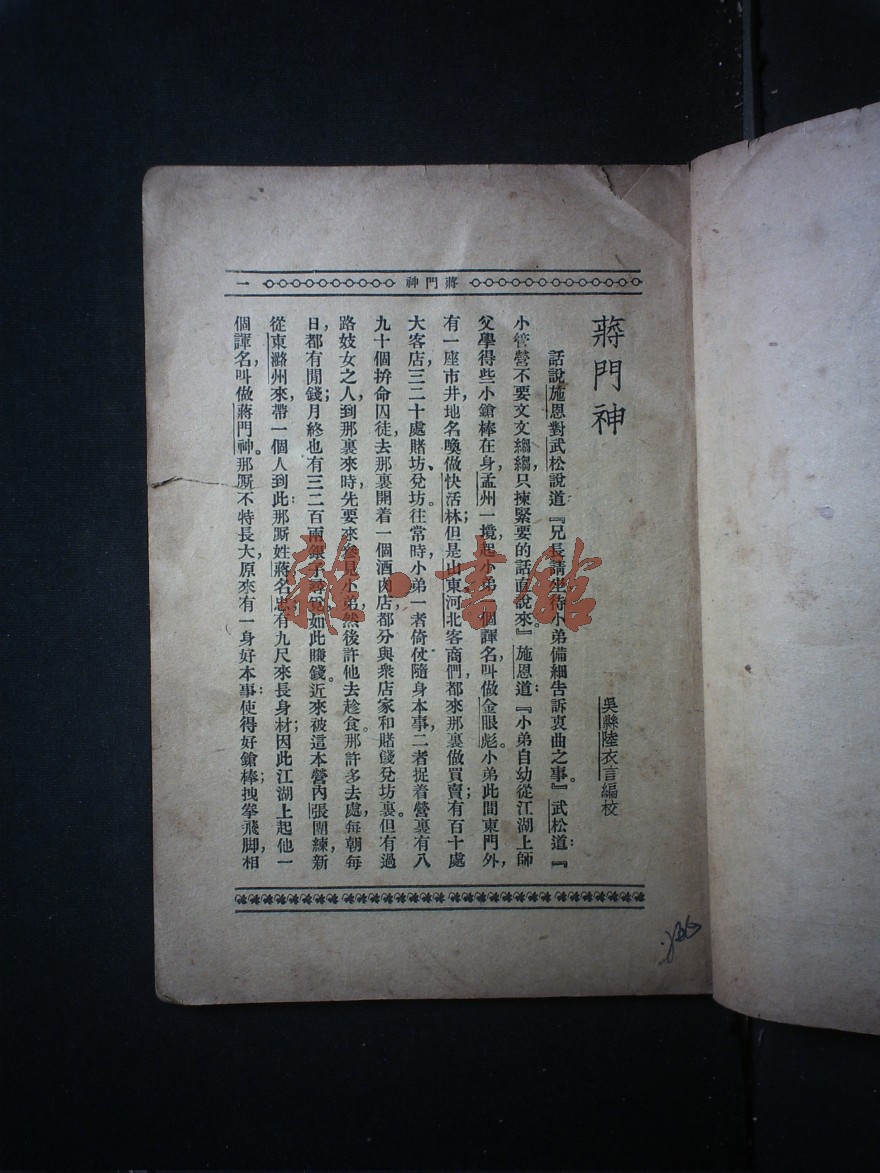 蔣門神
一
蔣門神
吳縣陸衣言編校
話說施恩對武松說道：『兄長請坐待小弟備細告訴衷曲之事。』武松道：『
小管營不要文文縐縐，只揀緊要的話直說來。』施恩道：『小弟自幼從江湖上師
父學得些小鎗棒在身，孟州一境，起小弟一個諢名，叫做金眼彪。小弟此間東門外，
有一座市井，地名喚做快活林；但是山東河北客商們，都來那裏做買賣；有百十處
大客店，三二十處賭坊、兌坊。往常時，小弟一者倚仗隨身本事，二者捉着營裏有八
九十個拚命囚徒，去那裏開着一個酒肉店，都分與衆店家和賭錢兌坊裏。但有過
路妓女之人，到那裏來時，先要來參見小弟，然後許他去趁食。那許多去處，每朝每
日，都有閒錢；月終也有三二百兩銀子尋覓，如此賺錢。近來被這本營內張團練，新
從東潞州來，帶一個人到此；那厮姓蔣名忠，有九尺來長身材；因此江湖上起他一
個諢名，叫做蔣門神。那厮不特長大，原來有一身好本事：使得好鎗棒；拽拳飛脚，相
雜·書館